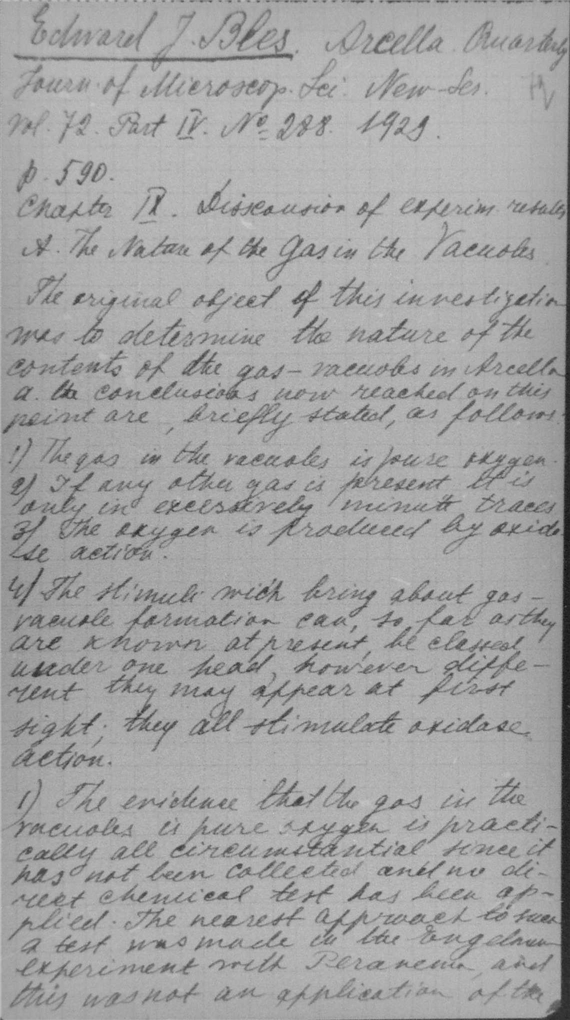 Edward J. Bles. Arcella. Quarterly
Journ. of Microscop. Sci. New-Ser.
Vol. 72. Part IV. No 288. 1929.
p. 590.
Chapter IX. Disscousion of experim. results
A. The Nature of the Gas in the Vacuoles.
The original object of this investigation
was to determine the nature of the
contents of the gas-vacuoles in Arcella
a. the conclusions now reached on this
point are, briefly stated, as follows:
1) The gas in the vacuoles is pure oxygen.
2) If any other gas is present it is
only in excessively minute traces
3) The oxygen is produced by oxida-
se action.
4) The stimuli wich bring about gas-
vacuole formation can, so far as they
are known at present, be classed
under one head, however diffe-
rent they may appear at first
sight; they all stimulate oxidase
action.
1) The evidence that the gas in the
vacuoles is pure oxygen is practi-
cally all circumstantial since it
has not been collected and no di-
rect chemical test has been ap-
plied. The nearest approach to such
a test was made in the Engelmann
experiment with Peranema, and
this was not an application of the